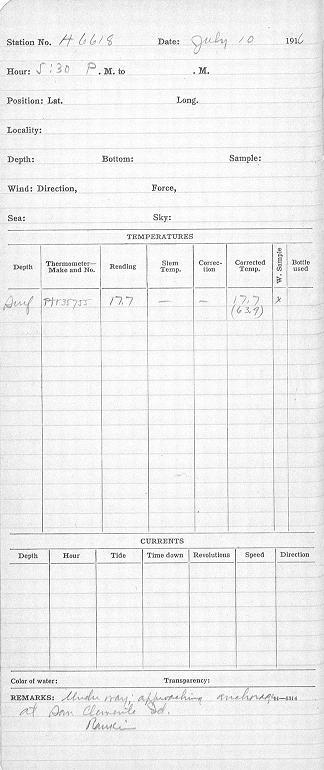 Station No. H6618 Date: July 10 1916
Hour: 5:30 P. M. to . M.
Position: Lat. Long.
Locality:
Depth: Bottom: Sample:
Wind: Direction, Force,
Sea: Sky:
TEMPERATURES
Depth Thermometer—Make and No. Reading Stem Temp. Correc-tion Corrected Temp. W. Sample Bottle used
Surf 17.7 — — 17.7 x
(63.9)
CURRENTS
Depth Hour Tide Time down Revolutions Speed Direction
Color of water: Transparency:
REMARKS: Under way; approaching anchorage
at San Clemente Id.